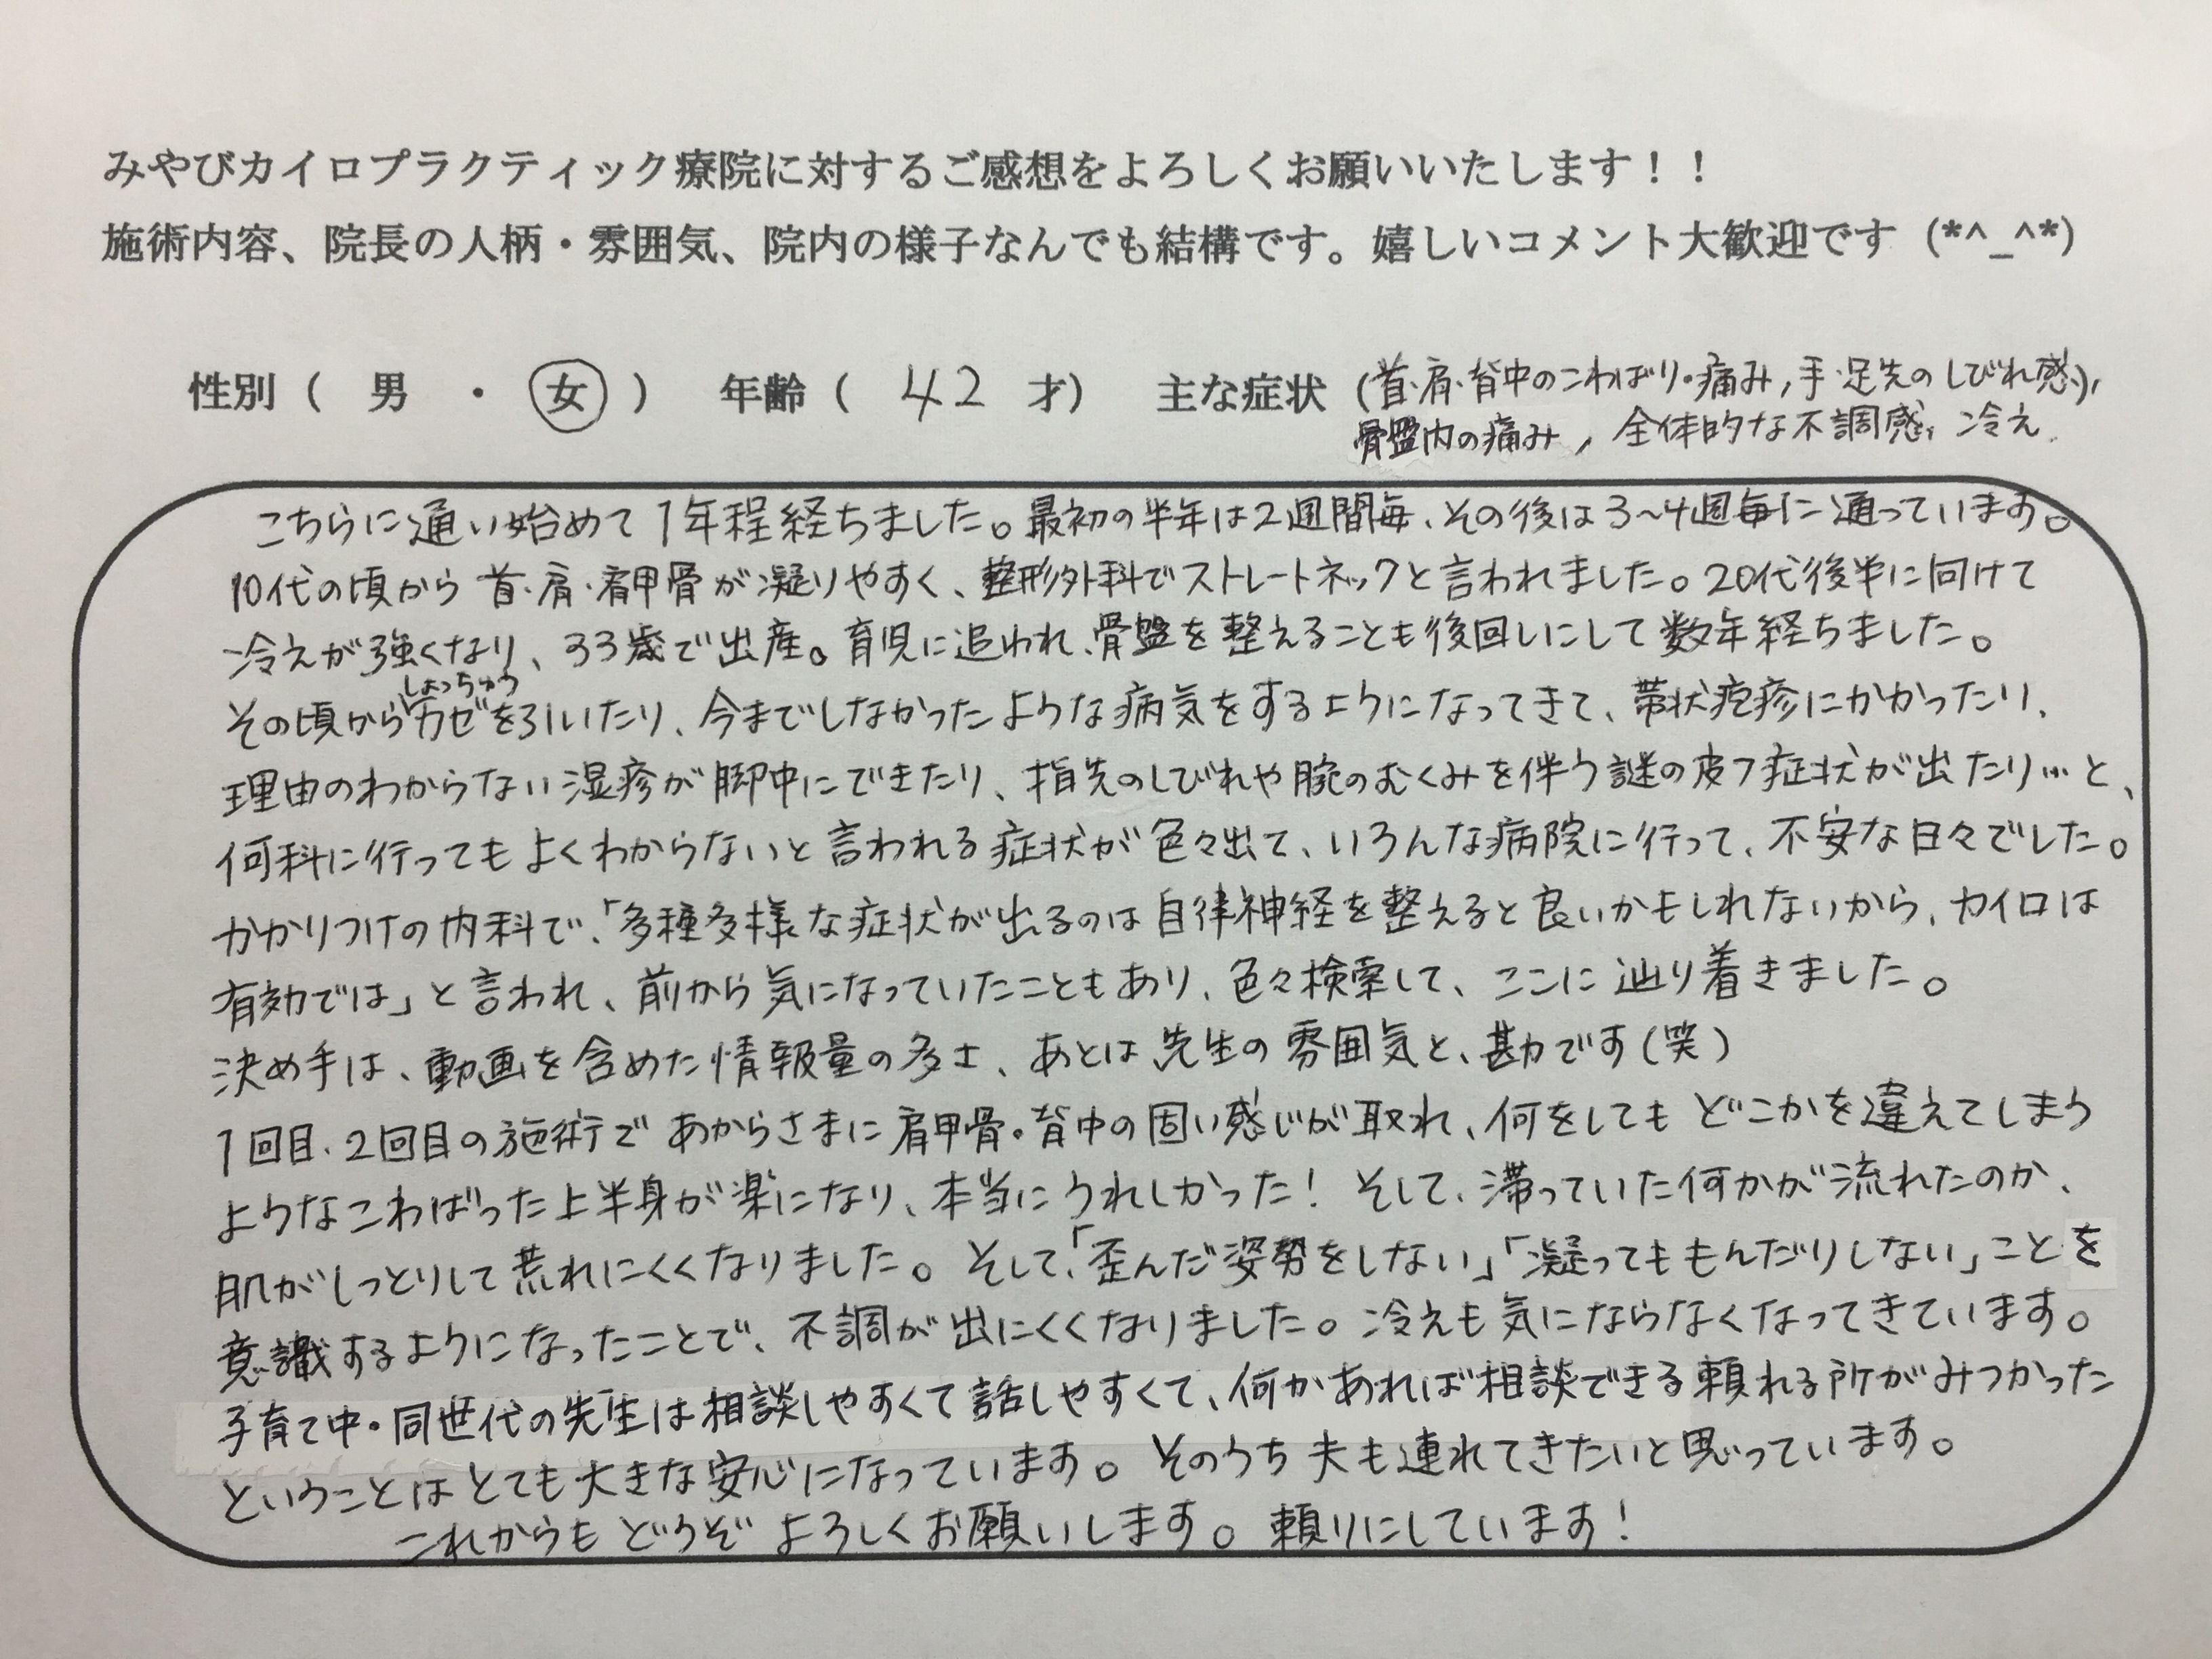 みやびカイロプラクティック療院に対するご感想をよろしくお願いいたします！！
施術内容、院長の人柄・雰囲気、院内の様子なんでも結構です。嬉しいコメント大歓迎です（*^_^*）
性別（　男　・　女　）　年齢（　42　才）　主な症状（首・肩・背中のこわばり・痛み,手・足先のしびれ感）,
骨盤内の痛み, 全体的な不調感, 冷え
こちらに通い始めて1年程経ちました。最初の半年は2週間毎、その後は3~4週毎に通っています。
10代の頃から首・肩・肩甲骨が凝りやすく、整形外科でストレートネックと言われました。20代後半に向けて
冷えが強くなり、33歳で出産。育児に追われ、骨盤を整えることも後回しにして数年経ちました。
その頃からしょっちゅうカゼを引いたり、今までしなかったような病気をするようになってきて、帯状疱疹にかかったり、
理由のわからない湿疹が脚中にできたり、指先のしびれや腕のむくみを伴う謎の皮フ症状が出たり…と、
何科に行ってもよくわからないと言われる症状が色々出て、いろんな病院に行って、不安な日々でした。
かかりつけの内科で、「多種多様な症状が出るのは自律神経を整えると良いかもしれないから、カイロは
有効では」と言われ、前から気になっていたこともあり、色々検索して、ここに辿り着きました。
決め手は、動画を含めた情報量の多さ、あとは先生の雰囲気と、勘です（笑）
1回目、2回目の施術であからさまに肩甲骨・背中の固い感じが取れ、何をしてもどこかを違えてしまう
ようなこわばった上半身が楽になり、本当にうれしかった！そして、滞っていた何かが流れたのか、
肌がしっとりして荒れにくくなりました。そして、「歪んだ姿勢をしない」「凝ってももんだりしない」ことを
意識するようになったことで、不調が出にくくなりました。冷えも気にならなくなってきています。
子育て中・同世代の先生は相談しやすくて話しやすくて、何かあれば相談できる頼れる所がみつかった
ということはとても大きな安心になっています。そのうち夫も連れてきたいと思っています。
これからもどうぞよろしくお願いします。頼りにしています！